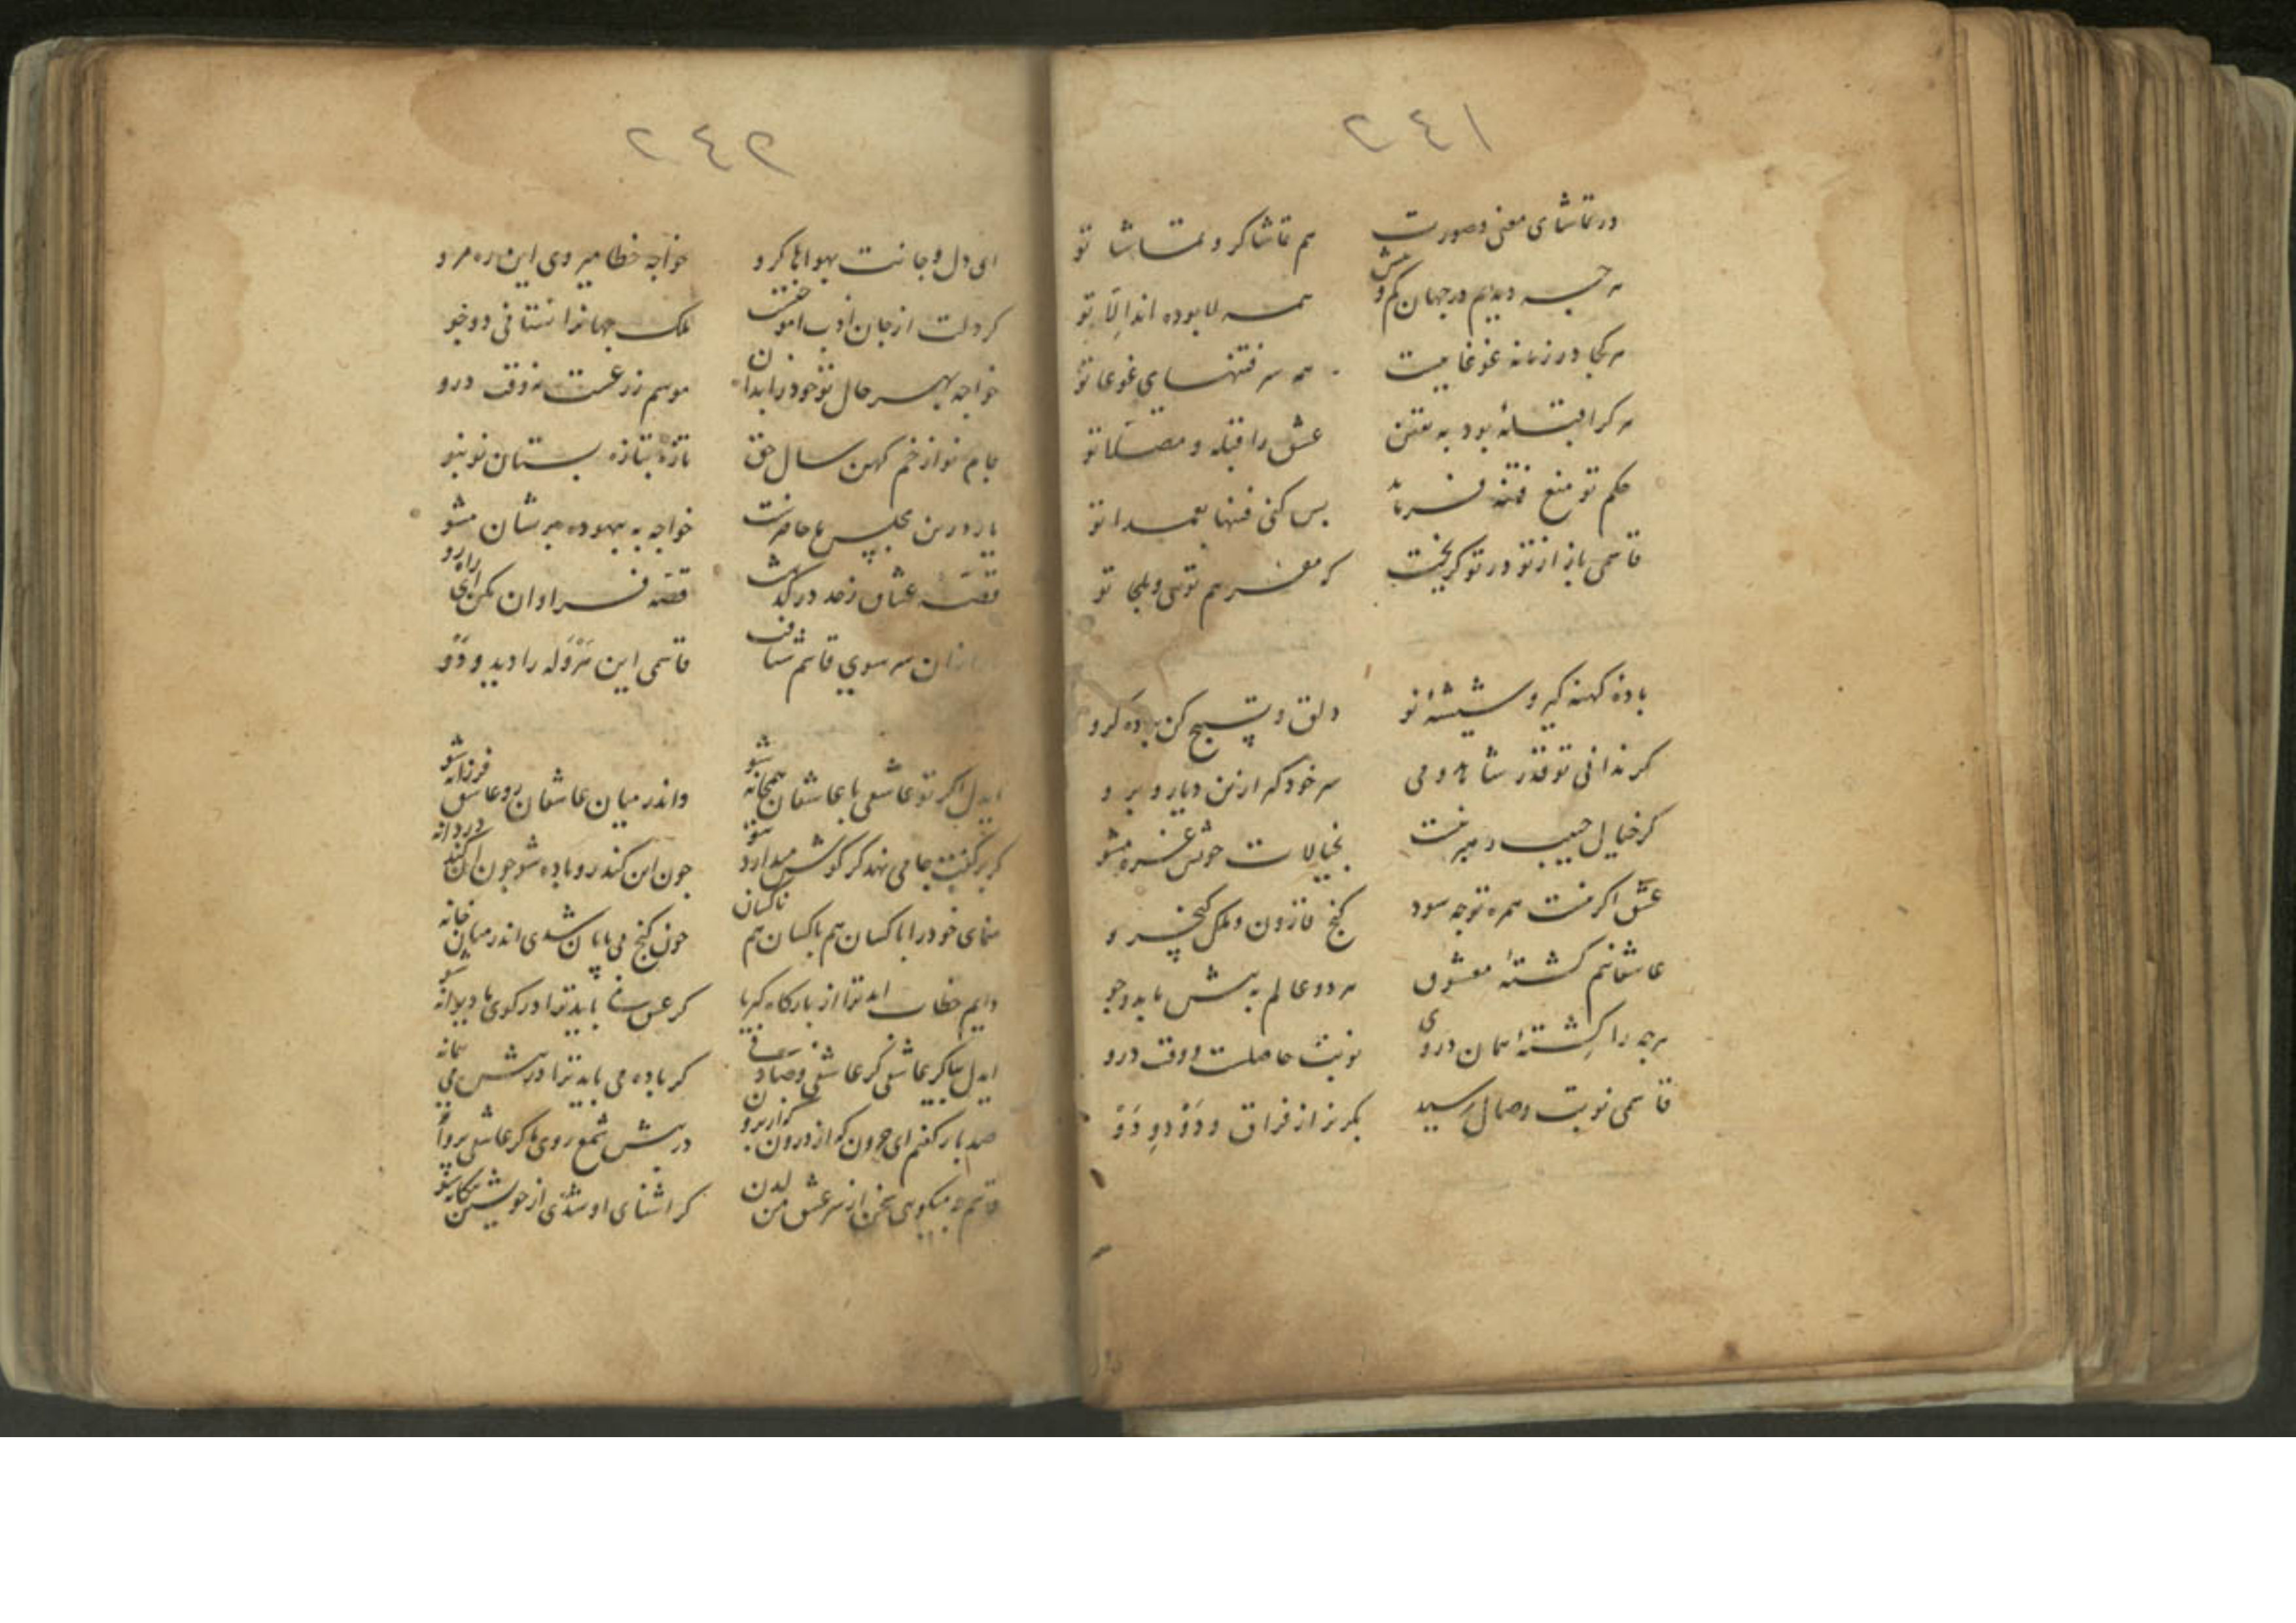 ٢٤١
در تماشای معنی و صورت
هم تماشاکر و تماشا تو
هر چه دیدیم در جهان کم و بیش
همه لا بوده اند الّا تو
هر کجا در زمانه غوغاییست
همه سر فتنهای غوغا تو
هر کرا قبلهٔ بود به یقین
عشق را قبله و مصلّا تو
حکم تو منع فتنه فرماید
بس کنی فتنها بعمدا تو
قاسمی باز از تو در تو کریخت
که مفر هم توئی و ملجا تو
بادهٔ کهنه کیر و شیشهٔ نو
دلق و تسبیح کن بباده کرو
کر ندانی تو قدر شاهد و می
سر خود کیر ازین دیار و برو
کر خیال حبیب رهبر نیست
بخیالات خویش غرّه مشو
عشق اکر نیست همره تو چه سود
کنج قارون و ملک کیخسرو
عاشقانیم کشتهٔ معشوق
هر دو عالم به پیش ما بدو جو
هر چه را کِشتهٔ همان دروی
نوبت حاصلست وقت درو
قاسمی نوبت وصال رسید
بکریز از فراق و دَوْ دوِ دَوْ
٢٤٢
ای دل و جانت بهواها کرو
خواجه خطا میروی این ره مرو
کر دلت از جان ادب آموختست
ملک جهانرا نستانی دو جو
خواجه بهر حال تو خود را بدان
موسم زرعست نه وقت درو
جام نو از خم کهن سال حق
تازه بتازه بستان نو بنو
یار درین مجلس ما حاضرست
خواجه به بیهوده پریشان مشو
قصّه عشاق ز حد درکذشت
قصّه فراوان مکن ای راه رو
ازان سر سوی قاسم شتافت
قاسمی این هَرْوَله را دید و دَوْ
ایدل اکر تو عاشقی با عاشقان همخانه شو
واندر میان عاشقان رو عاشق فرزانه شو
جون این کند رو باده شو جون آن کند دردانه
منمای خود را با کسان هم با کسان هم ناکسان
چون کنج می پنهان شدی اندر میان خانه شو
دایم خطاب اید ترا از بارکاه کبریا
کر عشق ما باید ترا در کوی ما دیوانه
کر باده می باید ترا در پیش می
صد بار کفتم ای حرون کو از درون
در پیش شمع روی ما کر عاشقی پروانه
قاسم چه میکویی سخن از سر عشق من لدن
کر آشنای او شدی از خویشتن بیکانه شو